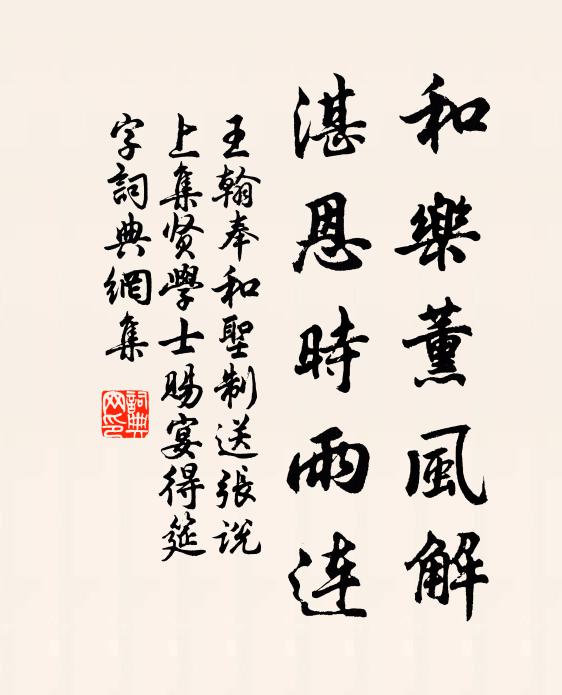 和樂薰風解
湛恩時雨連
王翰奉和聖制送張说
上集贤學士賜宴得筵
字詞典網集
詞典网印